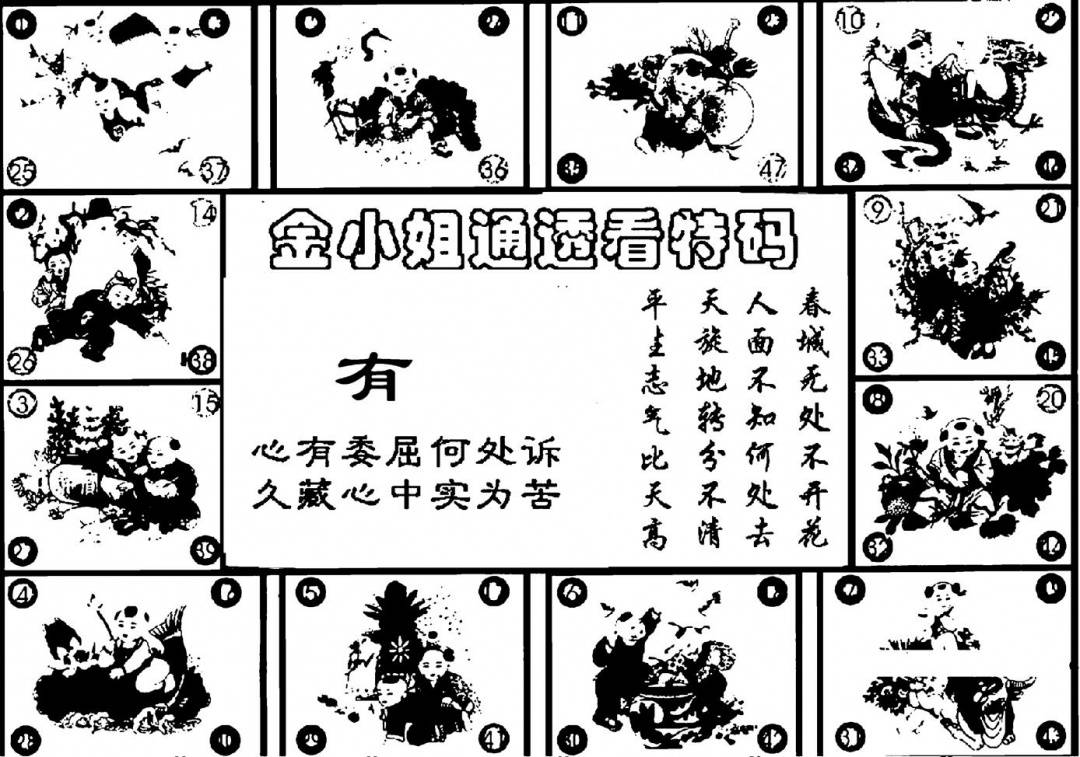 25 37
36
11
35 47
10
34
金小姐通透看特码
14
26 38
9 21
33 45
有
心有委屈何处诉
久藏心中实为苦
春城无处不开花
人面不知何处去
天旋地转分不清
平生志气比天高
3 15
27 39
8 20
32 44
4
28
5
29 41
6
42
7
31 43